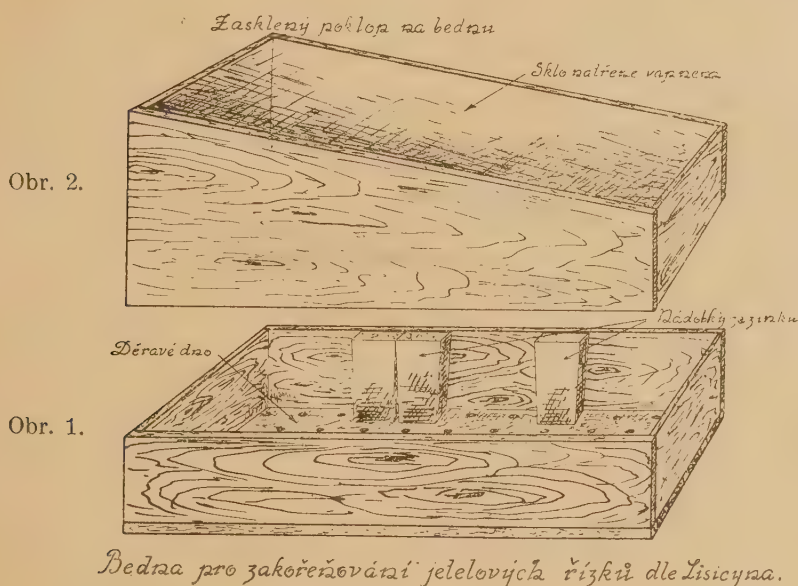 Zasklený poklop na bednu
Sklo natřene vapnem
Obr. 2.
Nádobky ze zinku
Děravé dno
Obr. 1.
Bedna pro zakořeňování jetelových řízků dle Lisicyna.